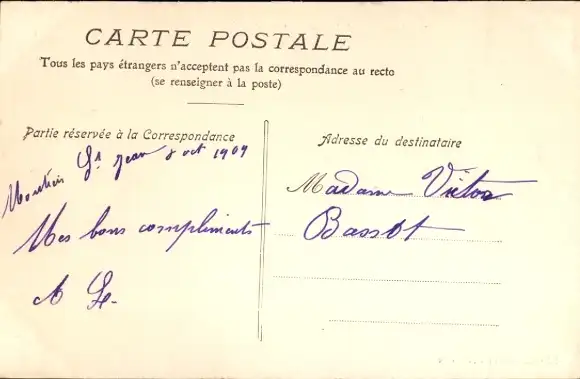 CARTE POSTALE
Tous les pays étrangers n'acceptent pas la correspondance au recto
(se renseigner à la poste)
Partie réservée à la Correspondance
St Jean 8 oct 1909
Mes bons compliments
Adresse du destinataire
Madame Victor
Bassot